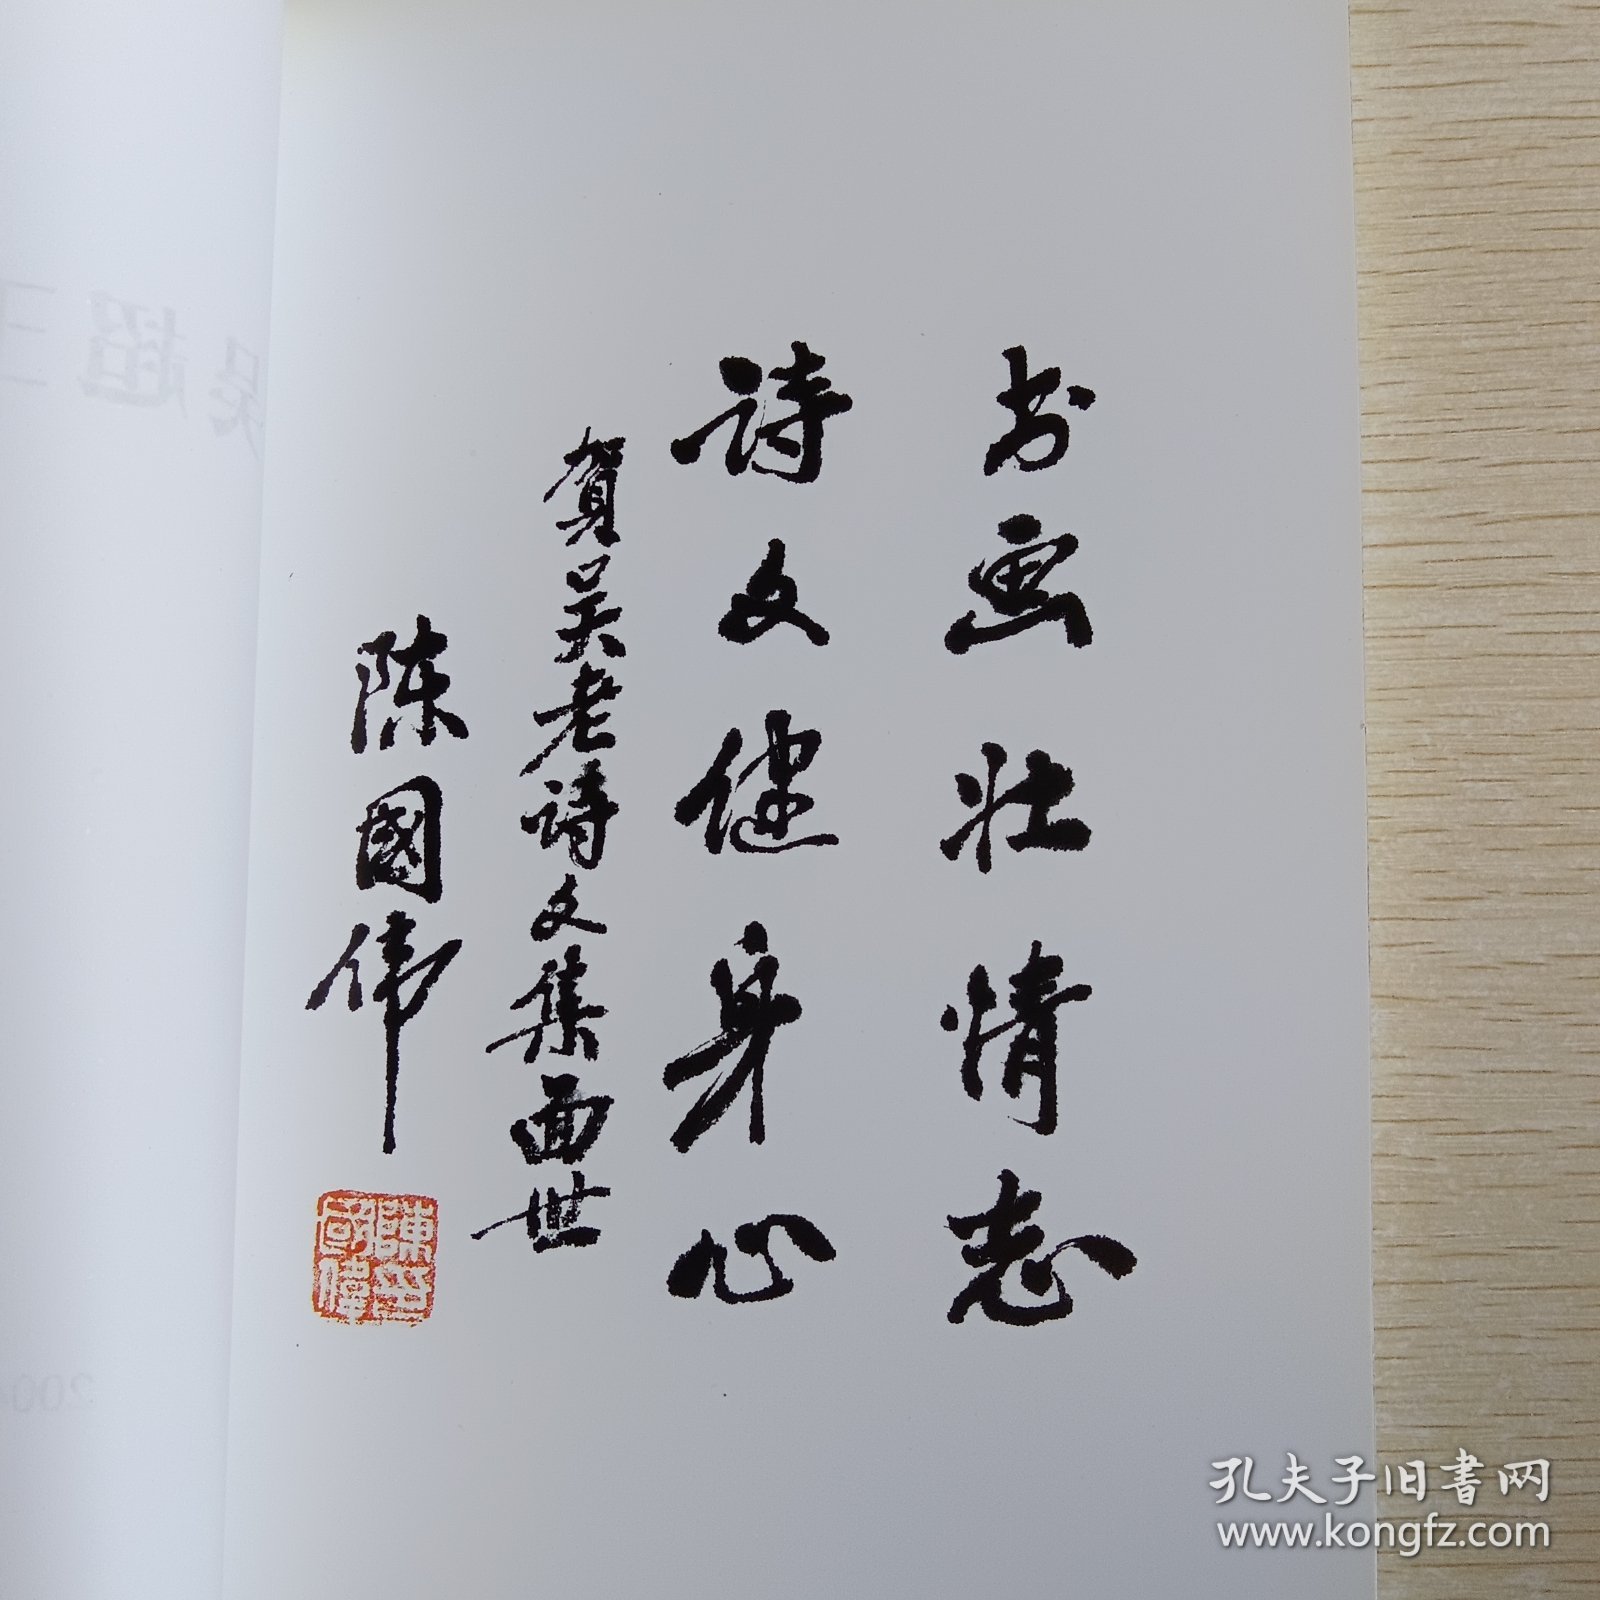 书画壮情志
诗文健身心
贺吴老诗文集面世
陈國伟
陳印
國偉
孔夫子旧書网
www.kongfz.com